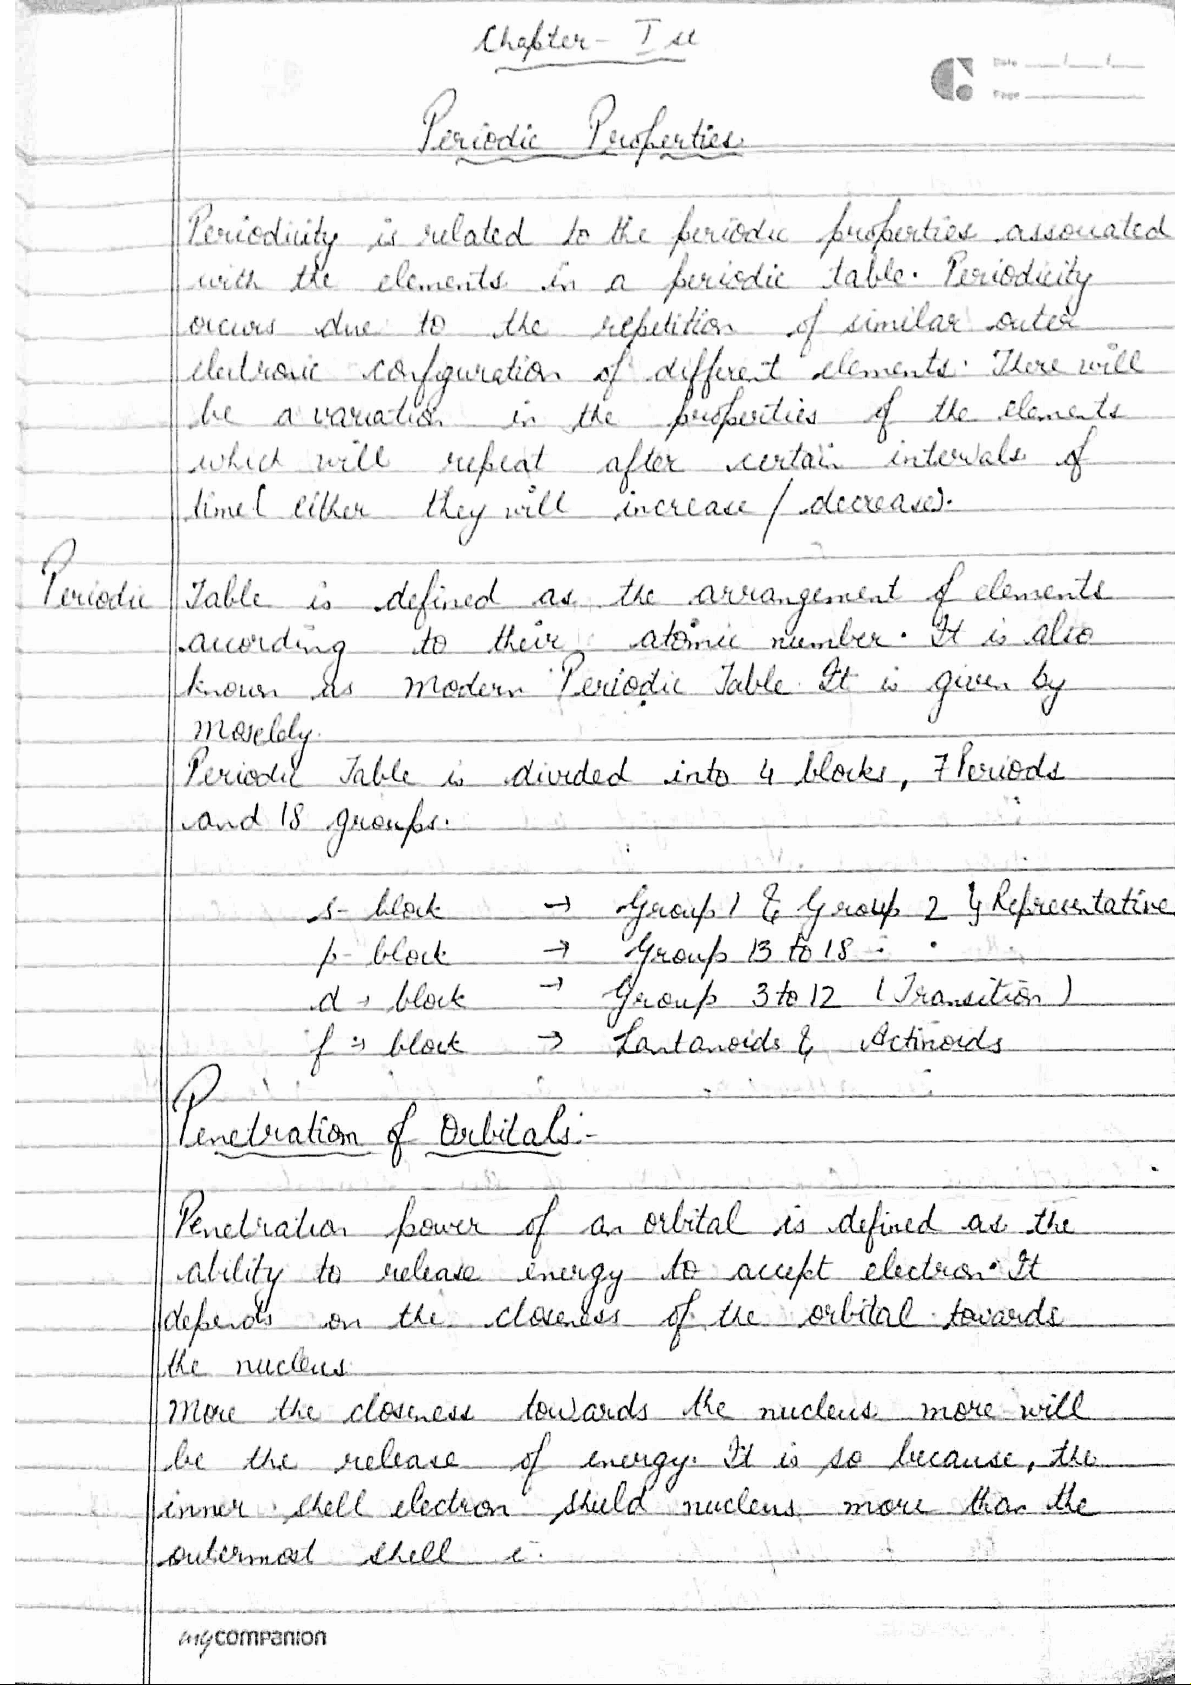 Chapter-
Date
Page
Periodic Properties
Periodicity is related to the periodic properties associated
with the elements in a periodic table. Periodicity
occurs due to the repetition of similar outer
electronic configuration of different elements. There will
be a variation in the properties of the elements
which will repeat after certain intervals of
time( either they will increase / decrease).
Periodic Table is defined as the arrangement of elements
according to their atomic number. It is also
known as Modern Periodic Table. It is given by
Moseldy.
Periodic Table is divided into 4 blocks, 7 Periods
and 18 groups.
s- block → Group 1 & Group 2 Representative
p- block → Group 13 to 18
d - block → Group 3 to 12 (Transition)
f - block → Lantanoids & Actinoids
Penetration of Orbitals:-
Penetration power of an orbital is defined as the
ability to release energy to accept electron. It
depends on the closeness of the orbital towards
the nucleus.
More the closeness towards the nucleus more will
be the release of energy. It is so because, the
inner shell electron shield nucleus more than the
outermost shell e-.
mycompanion